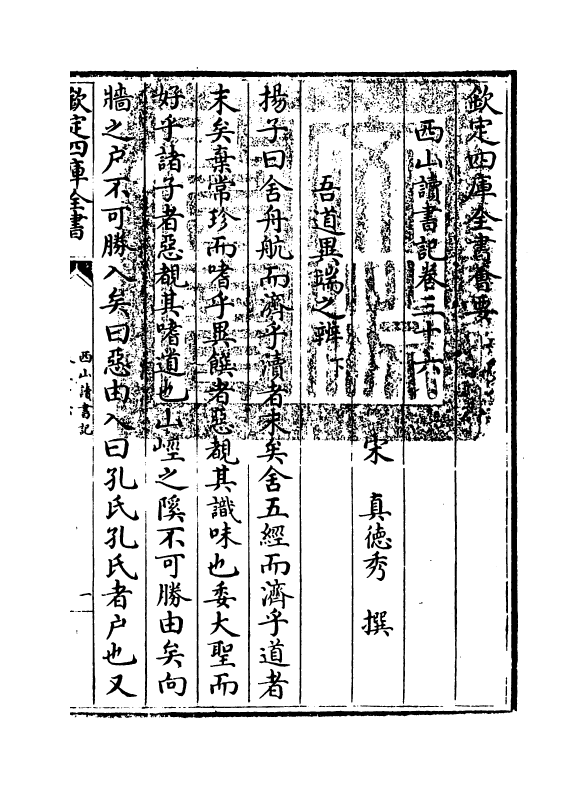 欽定四庫全書薈要
西山讀書記卷三十六
宋 真德秀 撰
吾道異端之辨下
揚子曰舍舟航而濟乎瀆者末矣舍五經而濟乎道者
末矣棄常珍而嗜乎異饌者惡覩其識味也委大聖而
好乎諸子者惡覩其嗜道也山𡶇之蹊不可勝由矣向
牆之户不可勝入矣曰惡由入曰孔氏孔氏者户也又
欽定四庫全書
西山讀書記
一